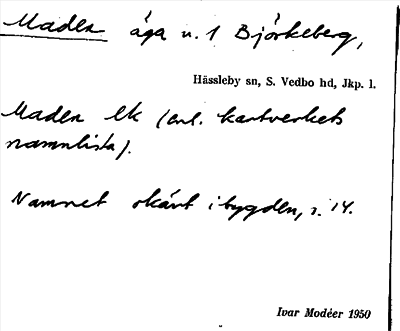 Maden äga n. 1 Björkeberg,
Hässleby sn, S. Vedbo hd, Jkp. l.
Maden ek (enl. kartverkets
namnlista).
Namnet okänt i bygden, s. 14.
Ivar Modéer 1950